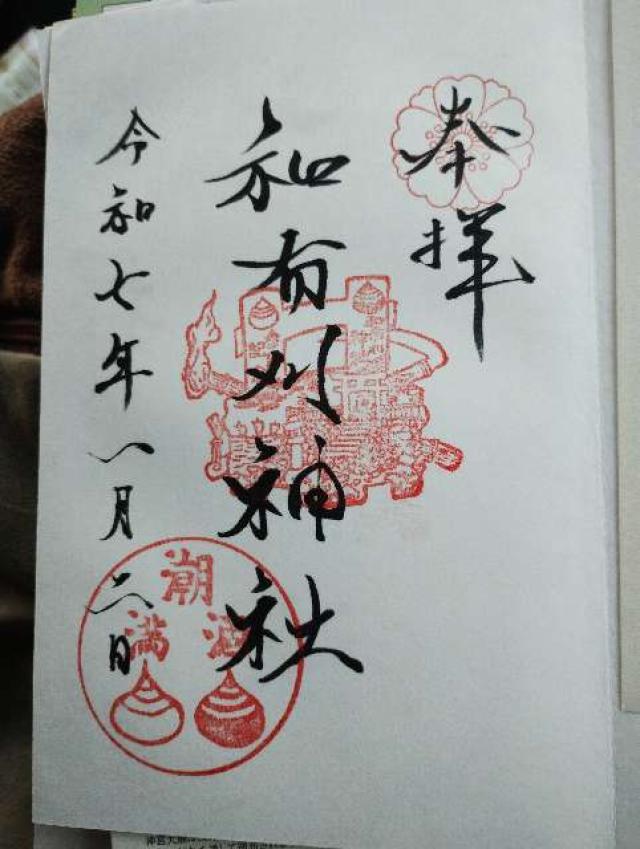 奉拝
和布刈神社
令和七年八月六日
潮
満